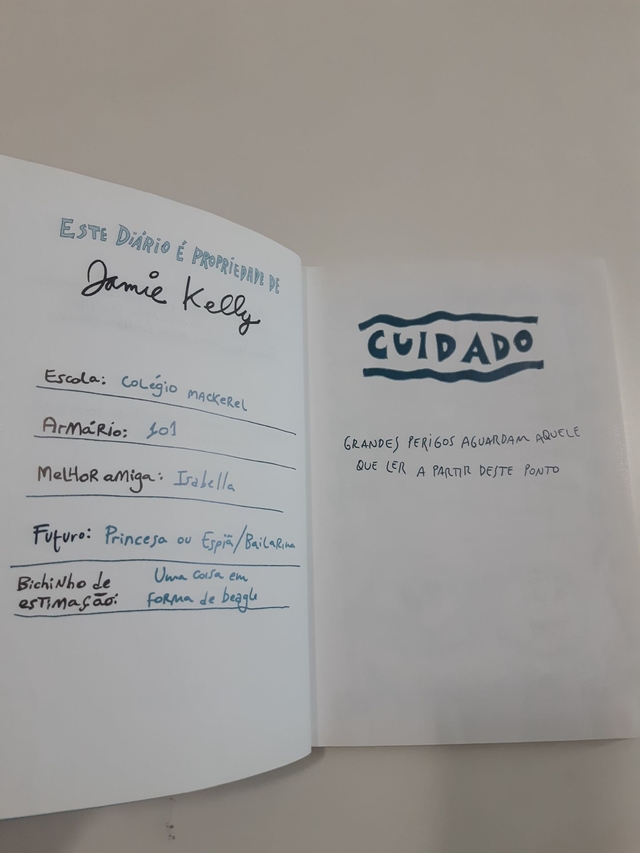 ESTE DIÁRIO É PROPRIEDADE DE
Jamie Kelly
Escola: Colégio Mackerel
Armário: 101
Melhor amiga: Isabella
Futuro: Princesa ou Espiã/Bailarina
Bichinho de Uma coisa em
estimação: forma de beagle
CUIDADO
GRANDES PERIGOS AGUARDAM AQUELE
QUE LER A PARTIR DESTE PONTO